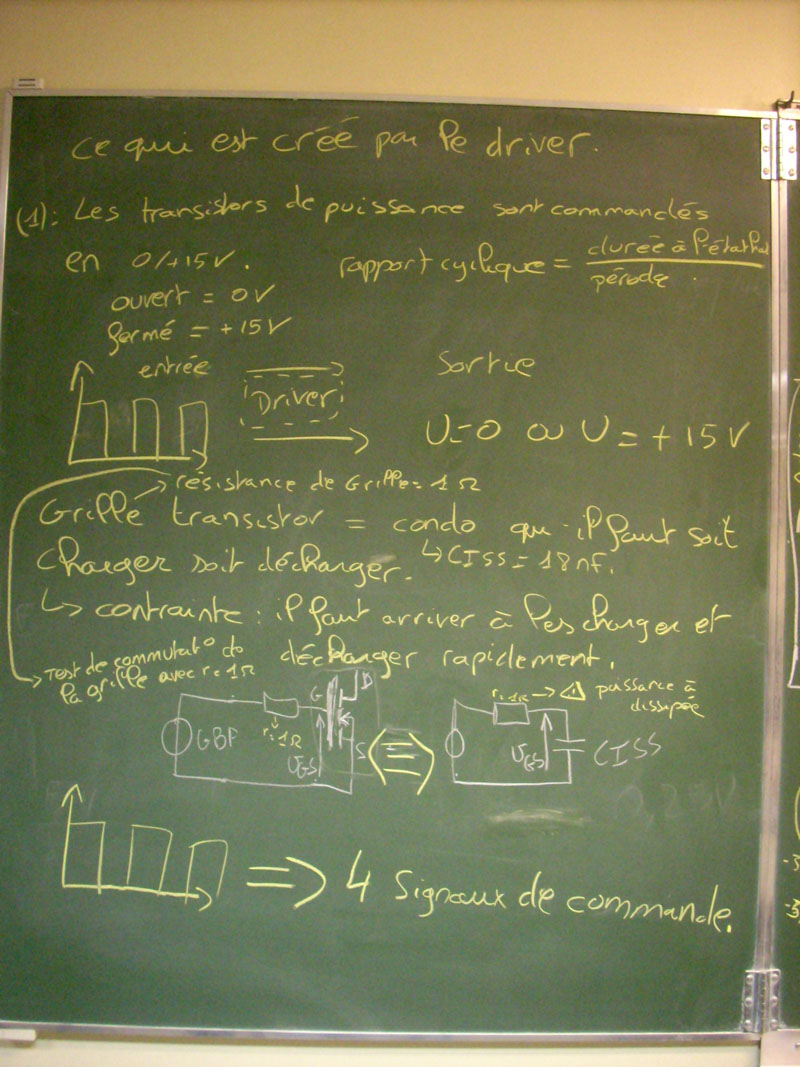 ce qui est créé par le driver.
(1): Les transistors de puissance sont commandés
en 0/+15V. rapport cyclique = durée à l'état ha
période
ouvert = 0V
fermé = +15V
entrée
Driver
Sortie
U=0 ou U=+15V
résistance de Grille=1Ω
Grille transistor = condo qu'il faut soit
charger soit décharger. ↳ CISS=18nf.
↳ contrainte: il faut arriver à les charger et
décharger rapidement.
Test de commutat° de
la grille avec r=1Ω
GBF
r=1Ω
G
D
S
UGS
(≡)
r=1Ω → ⚠ puissance à
dissipée
UGS
CISS
0,25V
⇒ 4 Signaux de commande.
-3
-3